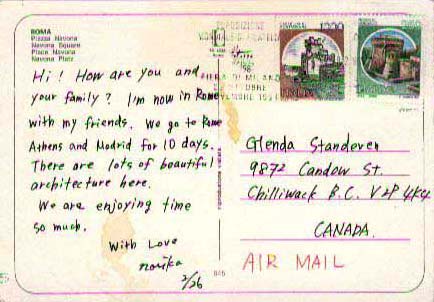 ROMA
Piazza Navona
Navona Square
Place Navona
Navona Platz
Hi! How are you and
your family? I'm now in Rome
with my friends. We go to Rome
Athens and Madrid for 10 days.
There are lots of beautiful
architecture here.
We are enjoying time
so much.
With Love
norika
2/26
1200
FIERA DI MILANO
Glenda Standeven
9872 Candow St.
Chilliwack B.C. V2P 4K4
CANADA.
AIR MAIL